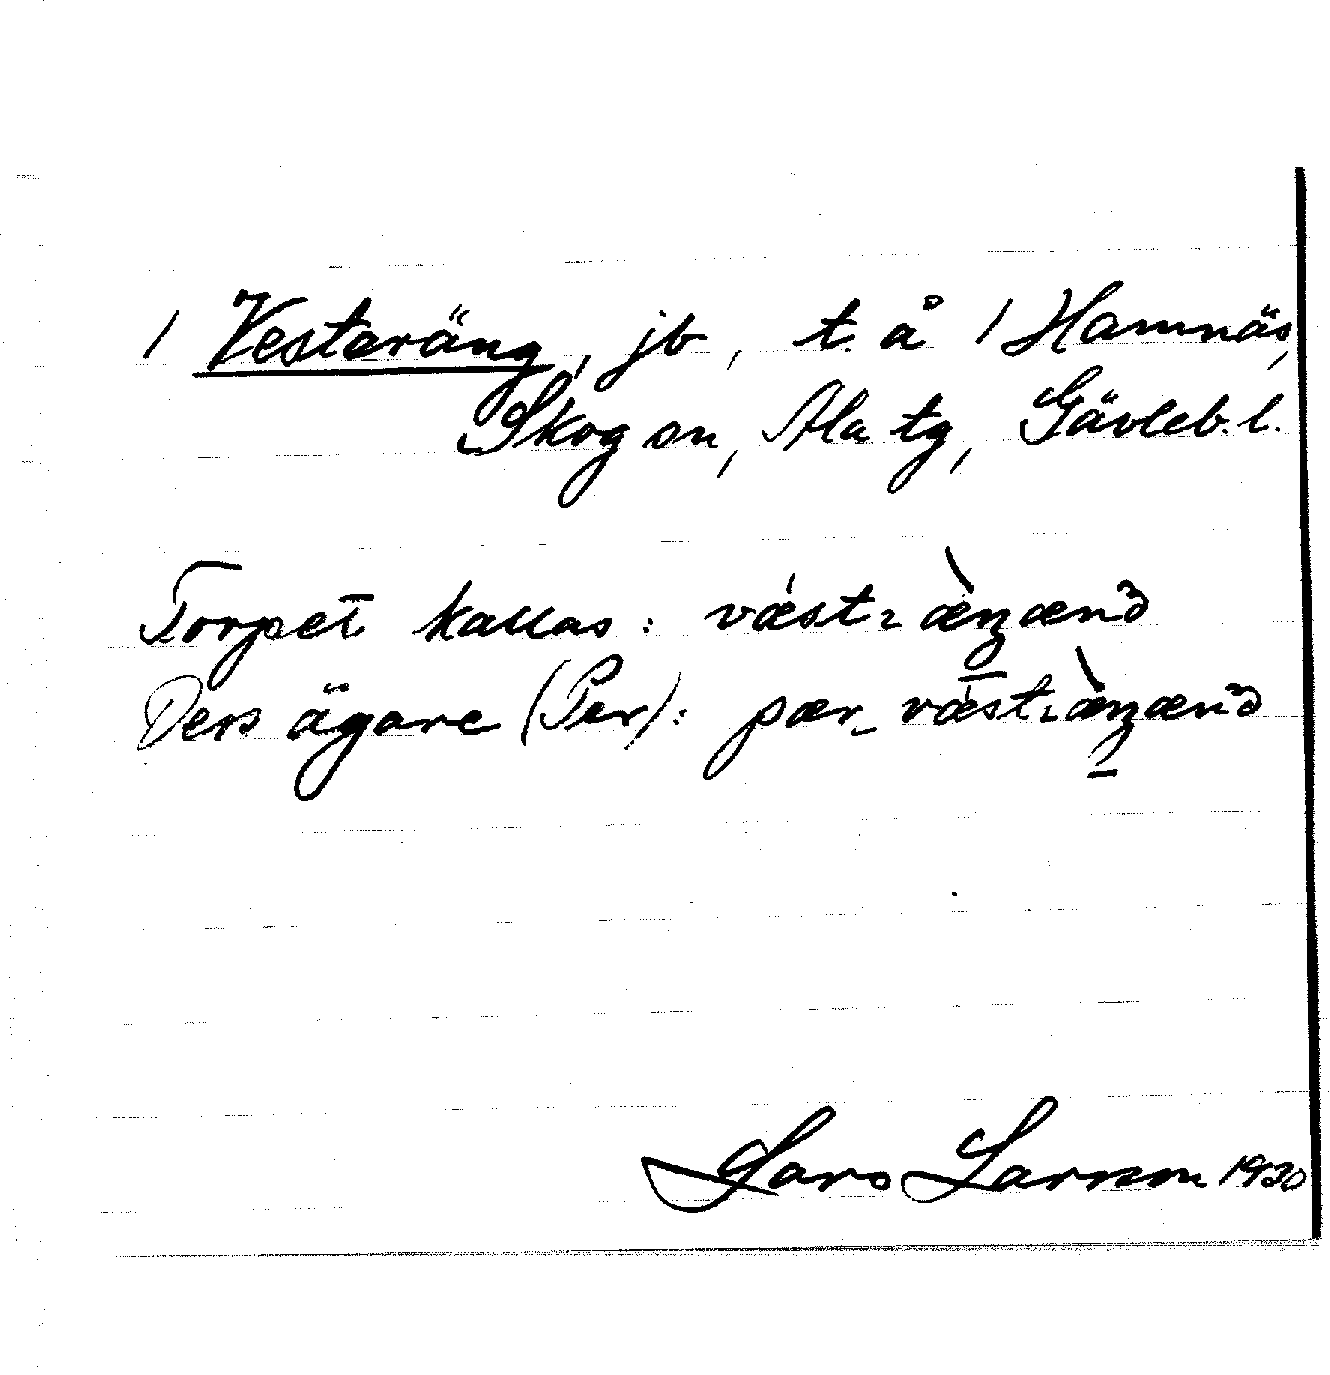 / Vesteräng, jb, t. å / Hamnäs,
Skog sn, Ala tg, Gävleb. l.
Torpet kallas: væst
Dess ägare (Per): pær
Lars Larsson 1930